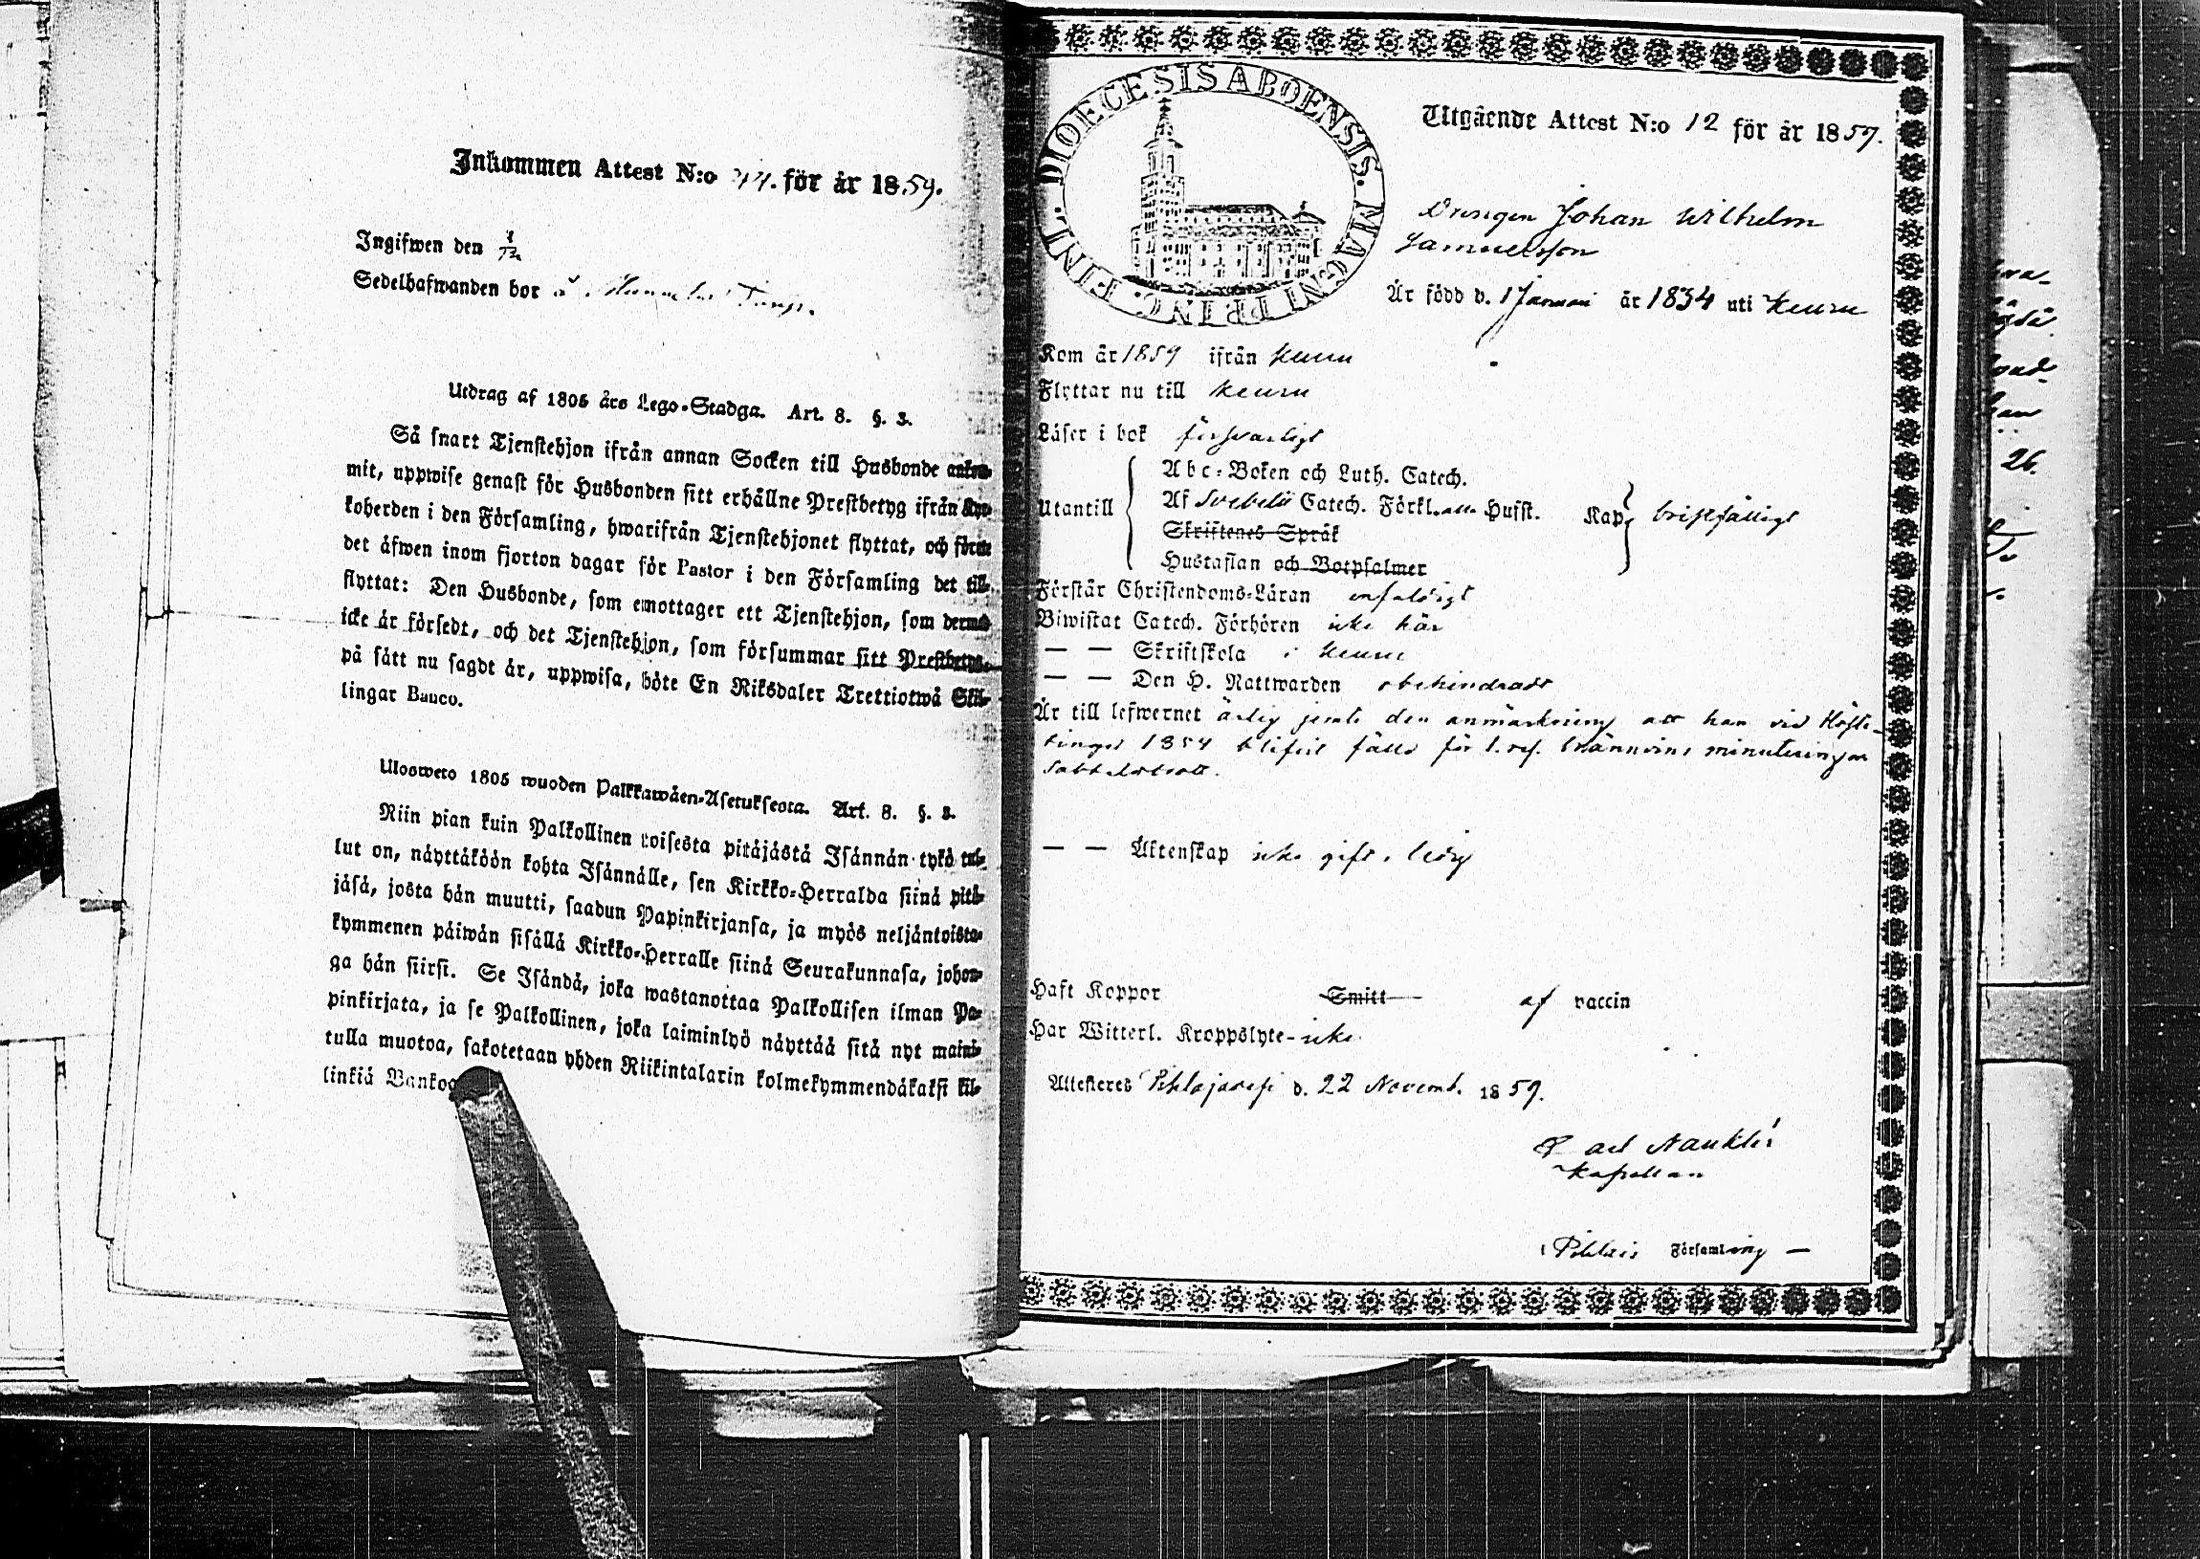 Inkommen Attest N:o 44. för år 1859.
Ingifwen den
Sedelhafwanden bor å
Utdrag af 1805 års Lego-Stadga. Art. 8. §. 3.
Så snart Tjenstehjon ifrån annan Socken till Husbonde ankom-
mit, uppwise genast för Husbonden sitt erhållne Prestbetyg ifrån Kyr-
koherden i den Församling, hwarifrån Tjenstehjonet flyttat, och förete
det äfwen inom fjorton dagar för Pastor i den Församling det till-
flyttat: Den Husbonde, som emottager ett Tjenstehjon, som dermed
icke är försedt, och det Tjenstehjon, som försummar sitt Prestbetyg,
på sätt nu sagdt är, uppwisa, böte En Riksdaler Trettiotwå Skil-
lingar Banco.
Ulosweto 1805 wuoden Palkkawäen-Asetuksesta. Art. 8. §. 3.
Niin pian kuin Palkollinen toisesta pitäjästä Isännän tykö tul-
lut on, näyttäköön kohta Isännälle, sen Kirkko-Herralda siinä pitä-
jäsä, josta hän muutti, saadun Papinkirjansa, ja myös neljäntoista-
kymmenen päiwän sisällä Kirkko-Herralle siinä Seurakunnasa, johon-
ga hän siirsi. Se Isändä, joka wastanottaa Palkollisen ilman Pa-
pinkirjata, ja se Palkollinen, joka laiminlyö näyttää sitä nyt maini-
tulla muotoa, sakotetaan yhden Riikintalarin kolmekymmendäkaksi kil-
linkiä Banko
DIOECESIS ABOENSIS. MAGNI PRINC. FINL.
Utgående Attest N:o 12 för år 1859.
Drengen Johan Wilhelm
Samuelsson
Är född d. 1 Januari år 1834 uti Keuru
Kom år 1859 ifrån Keuru
Flyttar nu till Keuru
Läser i bok försvarligt
Utantill
Abc-Boken och Luth. Catech.
Af Svebelii Catech. Förkl. Hufst. Kap. bristfälligt
Skriftenes Språk
Hustaflan och Botpsalmer
Förstår Christendoms-Läran enfaldigt
Biwistat Catech. Förhören icke här
— — Skriftskola i Keuru
— — Den H. Nattwarden obehindradt
Är till lefwernet ärlig jemte den anmärkning att han vid Höste-
tinget 1854 blifvit fälld för 1. resa brännvins minutering och
sabbatsbrott.
— — Äktenskap icke gift, ledig
Haft Koppor Smitt af vaccin
Har Witterl. Kroppslyte icke
Attesteras Pihlajavesi d. 22 Novemb. 1859.
Nauklér
Kapellan
i Pihlais Församling —
26.